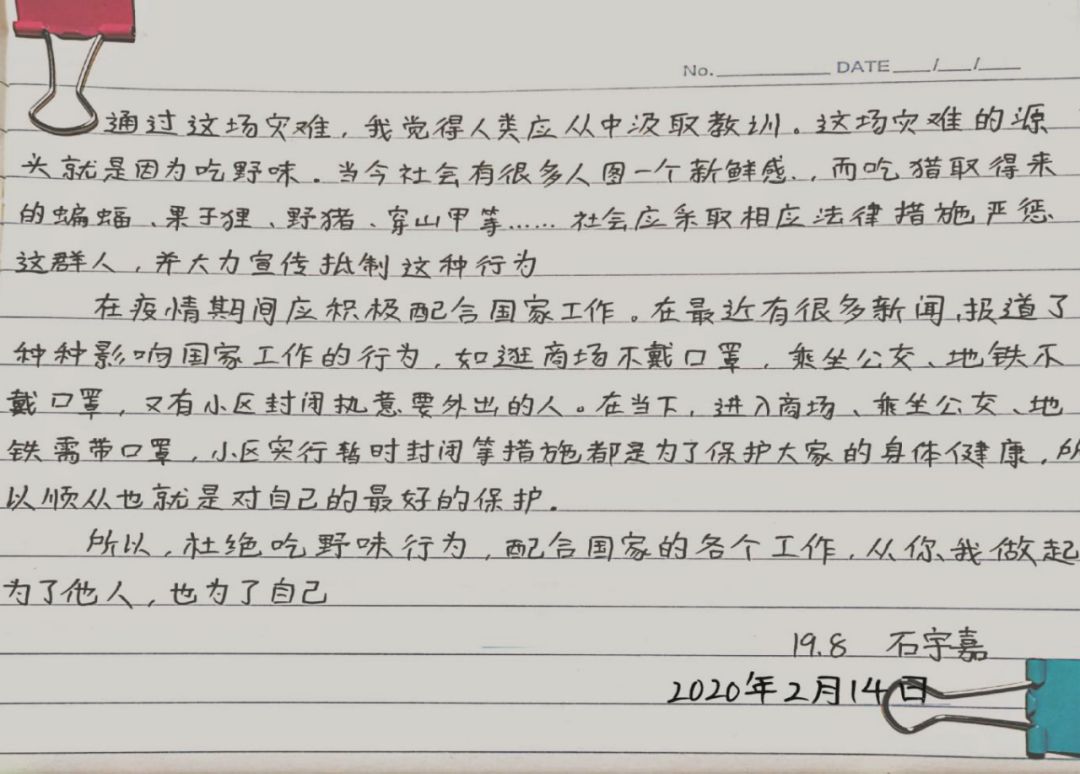 No. DATE / /
通过这场灾难，我觉得人类应从中汲取教训。这场灾难的源
头就是因为吃野味。当今社会有很多人图一个新鲜感，而吃猎取得来
的蝙蝠、果子狸、野猪、穿山甲等……社会应采取相应法律措施严惩
这群人，并大力宣传抵制这种行为
在疫情期间应积极配合国家工作。在最近有很多新闻，报道了
种种影响国家工作的行为，如逛商场不戴口罩，乘坐公交、地铁不
戴口罩，又有小区封闭执意要外出的人。在当下，进入商场、乘坐公交、地
铁需带口罩，小区实行暂时封闭等措施都是为了保护大家的身体健康，所
以顺从也就是对自己的最好的保护。
所以，杜绝吃野味行为，配合国家的各个工作，从你、我做起
为了他人，也为了自己
19.8 石宇嘉
2020年2月14日